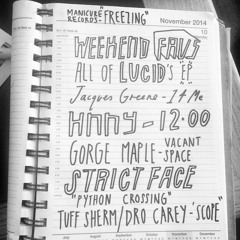 MANICURE RECORDS - "FREEZING"
November 2014
10
WEEKEND FAVS
ALL OF LUCID'S "EP"
Jacques Greene - 1 4 Me
HNNY - 12:00
GORGE MAPLE - VACANT SPACE
STRICT FACE
"PYTHON CROSSING"
TUFF SHERM/DRO CAREY - 'SCOPE'
July August September October November December